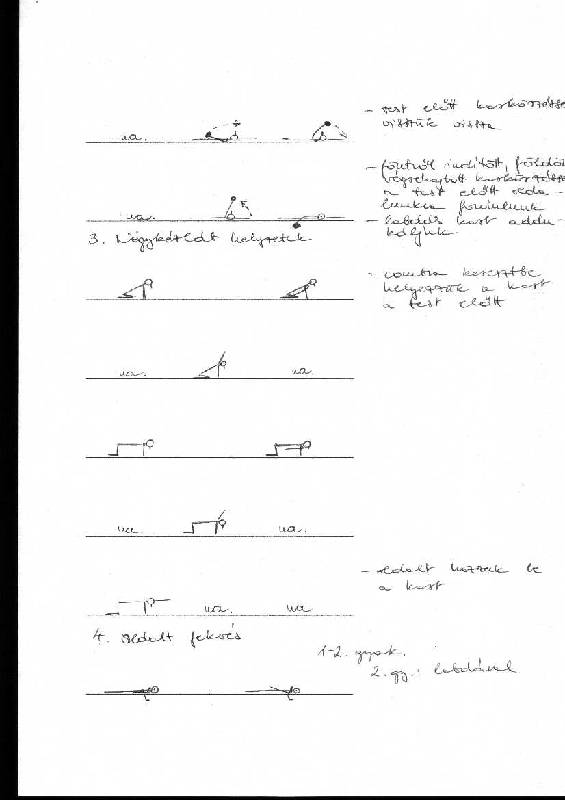 - test előtt karkörzéssel
visszük vissza
ua.
- földről indított, földön
végrehajtott karkörzéssel
a test előtt olda-
lunkra fordulunk
ua.
- labdás kart addu-
káljuk.
3. Négykézláb helyzetek.
- contra keresztbe
helyezzük a kart
a test előtt
ua. ua.
ua. ua.
- oldalt hozzuk be
a kart
ua. ua.
4. oldalt fekvés
1-2. gyak.
2. gy.: labdával